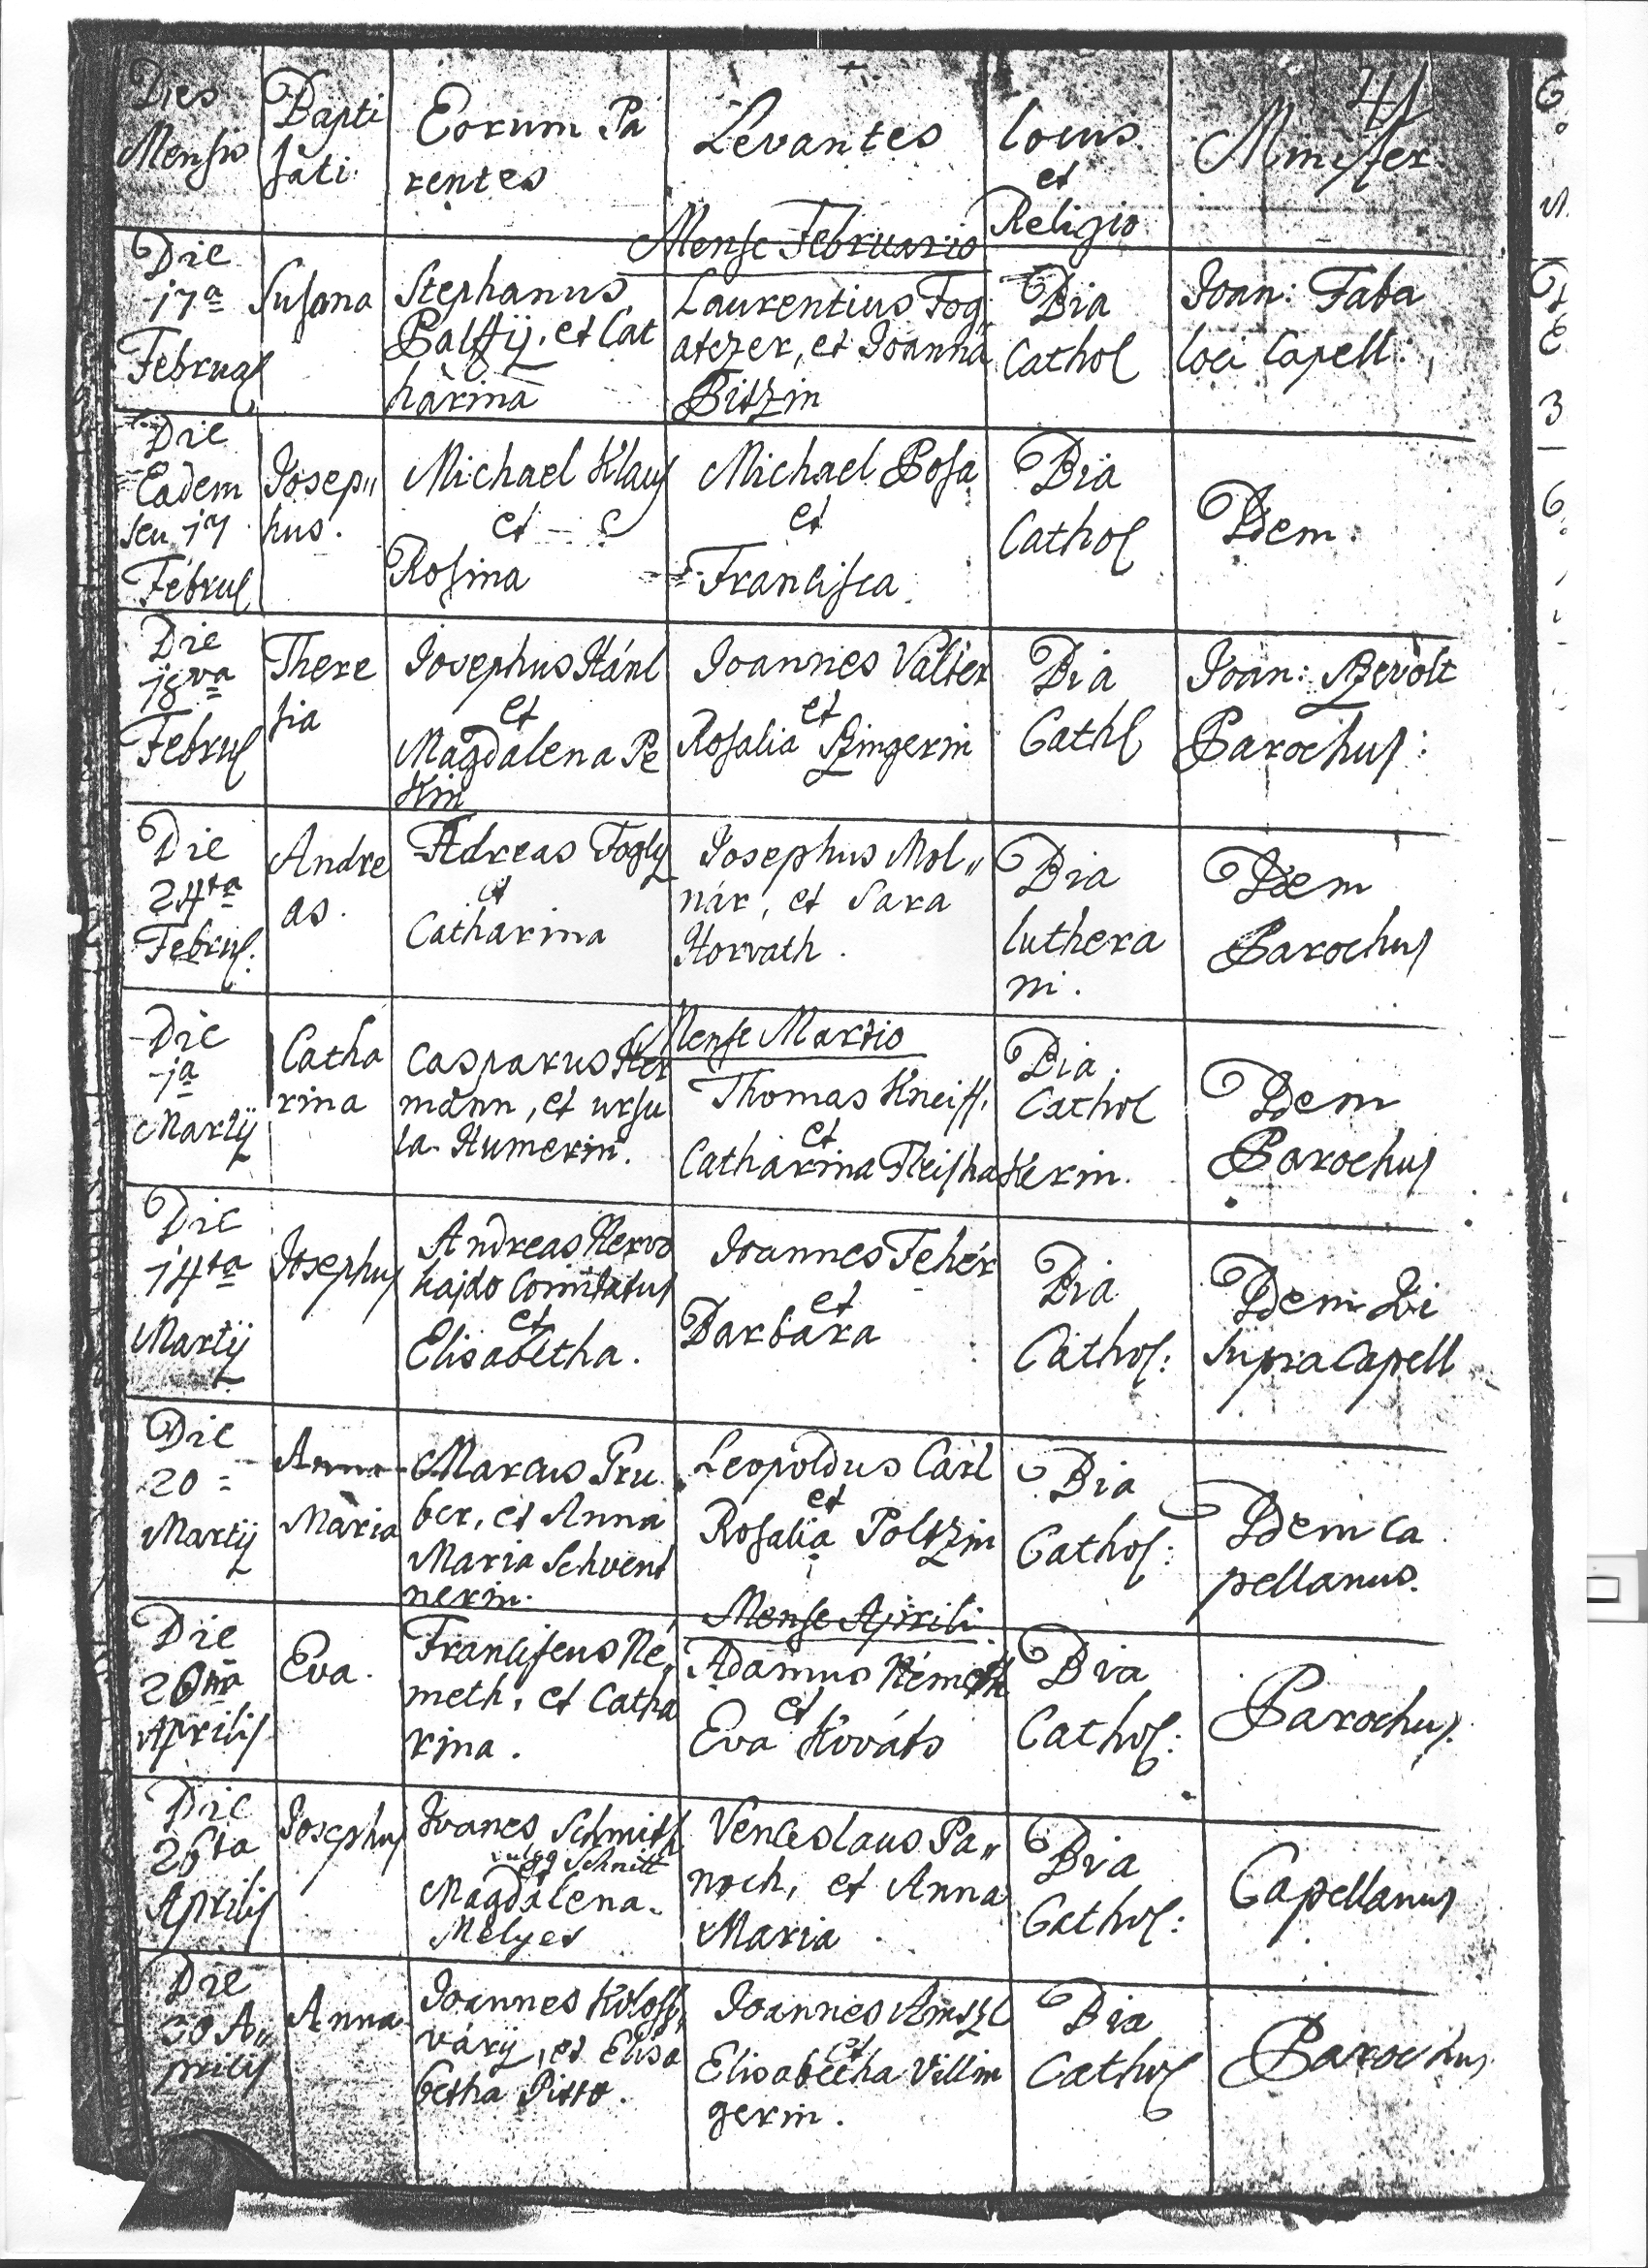 41
Dies
Mensis
Bapti
sati.
Eorum Pa
rentes
Levantes
locus
et
Religio
Minister
Mense Februario
Die
17a
Februar
Susana
Stephanus
Palffÿ, et Cat
harina
Laurentius Fog
atczer, et Joanna
Bitzin
Bia
Cathol
Joan: Faba
loci Capell:
Die
Eadem
seu 17
Febru
Josep„
hus.
Michael Klaus
et
Rosina
Michael Posa
et
Francisca.
Bia
Cathol
Idem.
Die
18va
Febru
There
sia
Josephus Hánl
et
Magdalena Pe
kin
Joannes Valter
et
Rosalia Szingerin
Bia
Cathl
Joan: Szevolt
Parochus:
Die
24ta
Febru:
Andre
as.
Adreas Fogly
et
Catharina
Josephus Mol„
nár, et Sara
Horvath.
Bia
luthera
ni.
Idem
Parochus
Mense Martio
Die
1a
Martÿ
Catha
rina
Casparus Her
mann, et ursu
la Humerin.
Thomas Kneiff,
et
Catharina Fleishakerin.
Bia.
Cathol
Idem
Parochus
Die
14ta
Martÿ
Josephus
Andreas
hajdo Comitatus
et
Elisabetha.
Joannes Fehér
et
Barbara
Bia
Cathol:
Idem
supra Capell
Die
20
Martÿ
Anna
Maria
Marcus Gru
ber, et Anna
Maria Schvent
nerin.
Leopoldus Carl
et
Rosalia Poltzin
Bia
Cathol:
Idem ca
pellanus.
Mense Aprili
Die
20ma
Aprilis
Eva.
Franciscus Né„
meth, et Catha
rina.
Adamus Németh
et
Eva Kováts
Bia
Cathol:
Parochus.
Die
26ta
Aprilis
Josephus
Joanes Schmith
vulgo Schnitt
et
Magdalena
Mélyes
Venceslaus Pa„
noch, et Anna
Maria
Bia
Cathol:
Capellanus
Die
30 A„
prilis
Anna
Joannes Koloss„
várÿ, et Elisa
betha Pitto.
Joannes Amszl
et
Elisabetha Villin
gerin.
Bia
Cathol
Parochus